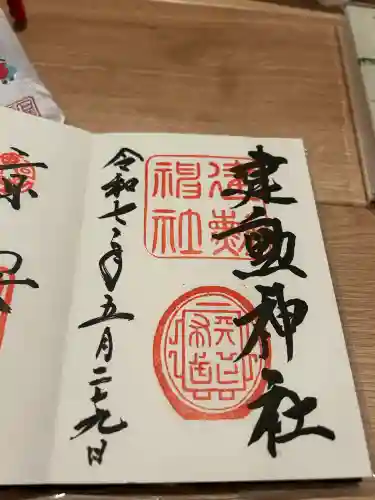 建勲神社
建勲神社
令和七年五月二十九日